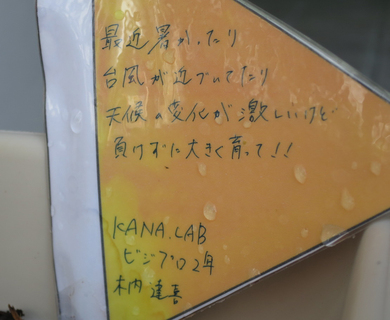 最近暑かったり
台風が近づいてたり
天候の変化が激しいけど
負けずに大きく育って!!
KANA.LAB
ビジプロ2年
木内達喜